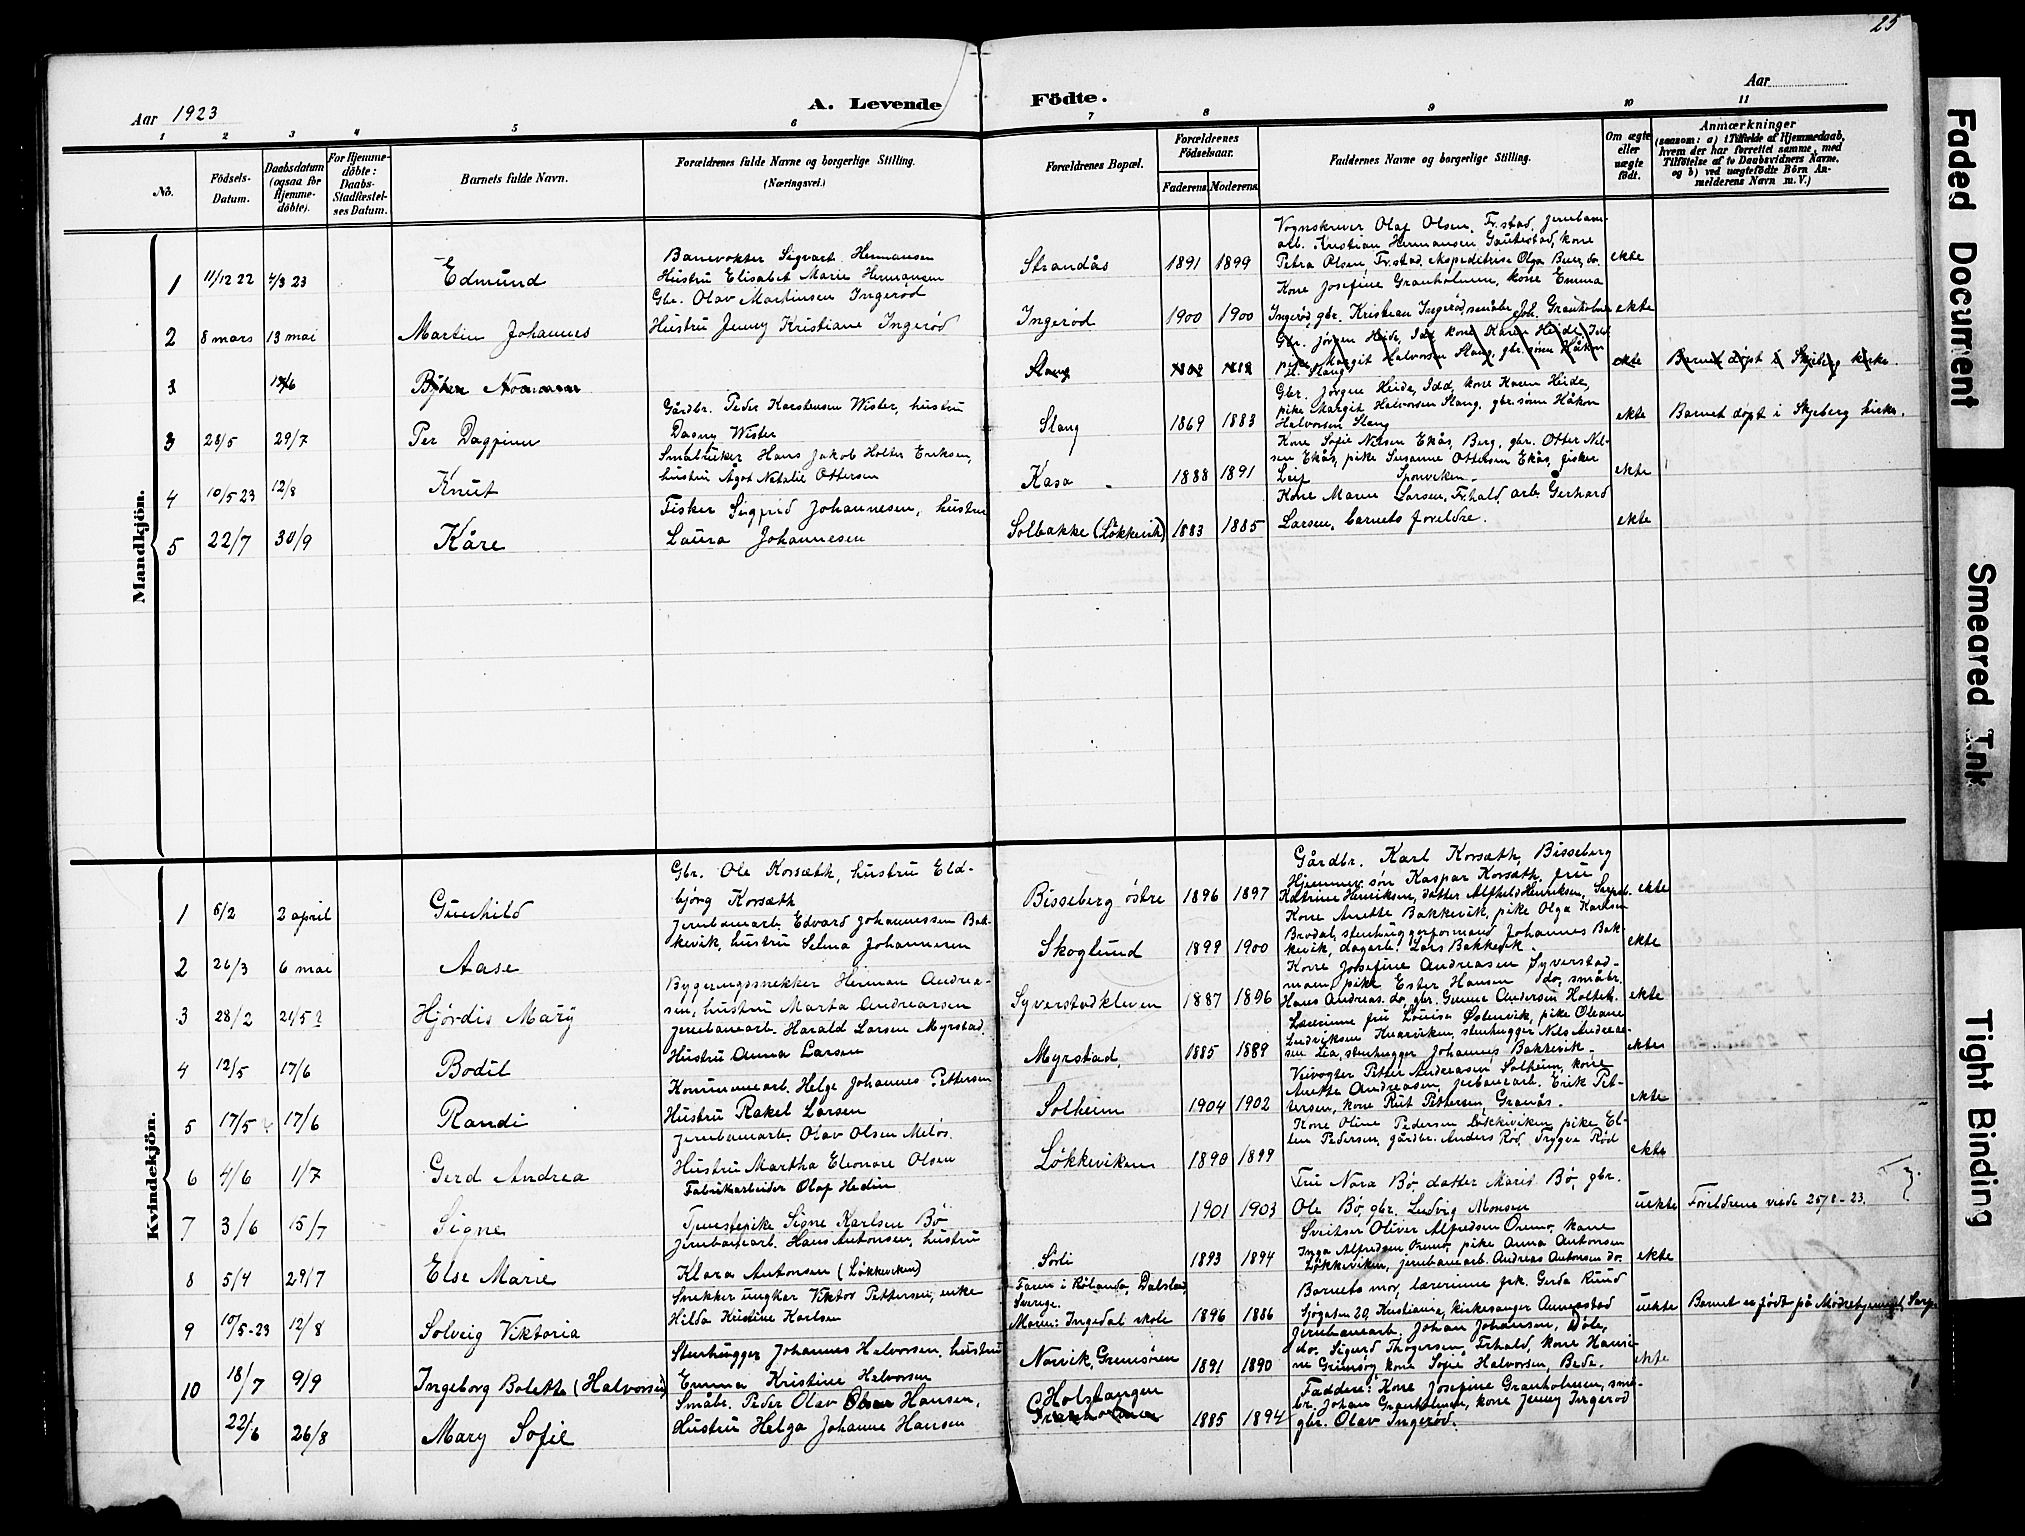 25
Aar 1923
A. Levende Födte.
Aar
1 2 3 4 5 6 7 8 9 10 11
No.
Födsels-Datum.
Daabsdatum (ogsaa for Hjemme-döbte).
For Hjemme-döbte: Daabs-Stadfæstel-ses Datum.
Barnets fulde Navn.
Forældrenes fulde Navne og borgerlige Stilling.
(Næringsvei.)
Forældrenes Bopæl.
Forældrenes Fødselsaar.
Faderens Moderens
Faddernes Navne og borgerlige Stilling.
Om ægte eller uægte födt.
Anmærkninger
(saasom: a) i Tilfælde af Hjemmedaab,
hvem der har forrettet samme, med
Tilföielse af to Daabsvidners Navne,
og b) ved uægtefödte Börn An-
melderens Navn m. V.)
Mandkjön.
1 11/12 22 4/3 23 Edmund
Banevokter Sigvart Hermansen
Hustru Elisabet Marie Hermansen
Strandås 1891 1899
Vognskriver Olaf Olsen, Fr.stad, jernbane-
arb. Kristian Hermansen Gautestad, kone
Petra Olsen Fr.stad, Ekspeditrise Olga Berg, do.
ekte
2 8 mars 13 mai Martin Johannes
Gbr. Olav Martinsen Ingerød
Hustru Jenny Kristiane Ingerød
Ingerød 1900 1900
Kone Josefine Granholmen, kone Emma
Ingerød, gbr. Kristian Ingerød, småbr. Joh. Granholmen
ekte
3
Slang
Gbr. Jörgen Heide, Idd kone Karen Heide, Idd
pike Margit Halvorsen Slang, gbr. sønn Håkon
Slang
ekte Barnet døpt i Skjeberg kirke
3 28/5 29/7 Per Dagfinn
Gårdbr. Peder Karstensen Wister, hustru
Dagny Wister
Slang 1869 1883
Gbr. Jörgen Heide, Idd, kone Karen Heide,
pike Margit Halvorsen Slang, gbr. sønn Håkon
Halvorsen Slang
ekte Barnet døpt i Skjeberg kirke.
4 10/5 23 12/8 Knut
Småbruker Hans Jakob Holter Eriksen,
hustru Ågot Natalie Ottersen
Kasa 1888 1891
Kone Sofie Nilsen Ekås, Berg, gbr. Otter Nil-
sen Ekås, pike Susanne Ottersen Ekås, fisker
Leif Sponviken.
ekte
5 22/7 30/9 Kåre
Fisker Sigfrid Johannesen, hustru
Laura Johannesen
Solbakke (Løkkevik) 1883 1885
Kone Marie Larsen, Fr.hald, arb. Gerhard
Larsen, barnets foreldre.
ekte
Kvindekjön.
1 6/2 2 april Gunhild
Gbr. Ole Korsæth, hustru Eld-
bjørg Korsæth
Bisseberg østre 1896 1897
Gårdbr. Karl Korsæth, Bisseberg
Hjemmev. søn Kaspar Korsæth, fru
Katrine Henriksen, datter Alfhild Henriksen, Sarpsb.
ekte
2 26/3 6 mai Aase
Jernbanearb. Edvard Johannessen Bak-
kevik, hustru Selma Johannesen
Skoglund 1899 1900
Kone Anette Bakkevik, pike Olga Karlsen
Brødal, stenhuggerformand Johannes Bak-
kevik, dagarb. Lars Bakkevik.
ekte
3 28/2 21/5 Hjördis Mary
Bygningssnekker Herman Andrea-
sen, hustru Marta Andreassen
Syverstadkleven 1887 1896
Kone Josefine Andreasen Syverstad-
moen, pike Ester Hansen do, småbr.
Hans Andreas. do, gbr. Gunnar Andersen Holteb.
ekte
4 12/5 17/6 Bodil
Jernbanearb. Harald Larsen Myrstad.
Hustru Anna Larsen
Myrstad, 1885 1889
Lærerinne fru Louisa Østenvik, pike Oleane
Ludviksen Kværviken, stenhugger Nils Andrea-
sen Lia, stenhugger Johannes Bakkevik.
ekte
5 17/5 17/6 Randi
Kommunearb. Helge Johannes Pettersen
Hustru Rakel Larsen
Solheim 1904 1902
Veivogter Petter Andreasen Solheim, kone
Anette Andreasen, jernbanearb. Erik Pet-
tersen, kone Rut Pettersen Granås.
ekte
6 4/6 1/7 Gerd Andrea
Jernbanearb. Olav Olsen Meløs.
Hustru Martha Eleonore Olsen
Løkkeviken 1890 1899
Kone Oline Pedersen Løkkeviken, pike El-
len Pedersen, gårdbr. Anders Rød, Trygve Rød
ekte
7 3/6 15/7 Signe
Fabrikarbeider Olaf Hedin
Tjenestepike Signe Karlsen Bø
1901 1903
Fru Nora Bø, datter Maris Bø, gbr.
Ole Bø, gbr. Ludvig Monsen
uekte Foreldrene viede 25/8-23.
8 5/4 29/7 Else Marie
Jernbanearb. Hans Antonsen, hustru
Klara Antonsen (Løkkeviken)
Sørli 1893 1894
Sveitser Oliver Alfredsen Oremo, kone
Inga Alfredsen Oremo, pike Anna Antonsen
Løkkeviken, jernbanearb. Andreas Antonsen do.
ekte
9 10/5-23 12/8 Solveig Viktoria
Snekker ungkar Viktor Pettersen, enke
Hilda Kristine Karlsen
Faren i Rölanda, Dalsland,
Sverige.
Moren: Ingedal skole 1896 1886
Barnets mor, lærerinne frk. Gerda Rund
Sjøgaten 20, Kristiania, kirkesanger Annerstad
uekte Barnet er født på Mødrehjemmet, Sarp.
10 18/7 9/9 Ingeborg Bolette (Halvorsen)
Stenhugger Johannes Halvorsen, hustru
Emma Kristine Halvorsen
Norvik, Grimsöen 1891 1890
Jernbanearb. Johan Johansen, Döle,
do. Sigurd Thøgersen, Fr.hald, kone Hanri-
ne Grimsøy, kone Sofie Halvorsen, Bede.
ekte
22/6 26/8 Mary Sofie
Småbr. Peder Olav Hansen,
Hustru Helga Johanne Hansen
Holstangen
1885 1894
Faddere: Kone Josefine Granholmen, små-
br. Johan Granholmen, kone Jenny Ingerød
gbr. Olav Ingerød.
Faded Document
Smeared Ink
Tight Binding